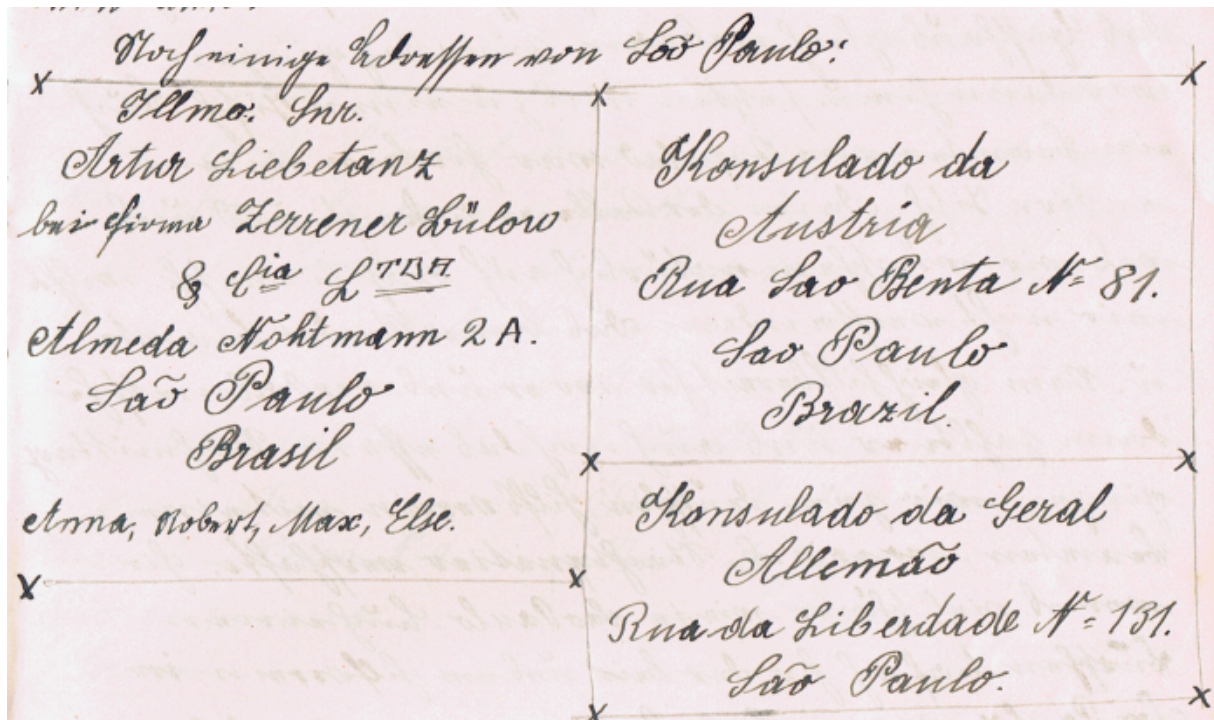 Noch einige Adressen von São Paulo:
Illmo. Snr.
Artur Liebetanz
bei Firma Zerrener Bülow
& Cia LTDA
Almeda Nohtmann 2 A.
São Paulo
Brasil
Anna, Robert, Max, Else.
Konsulado da
Austria
Rua Sao Benta No 81.
Sao Paulo
Brazil.
Konsulado da Geral
Allemão
Rua da Liberdade No 131.
São Paulo.